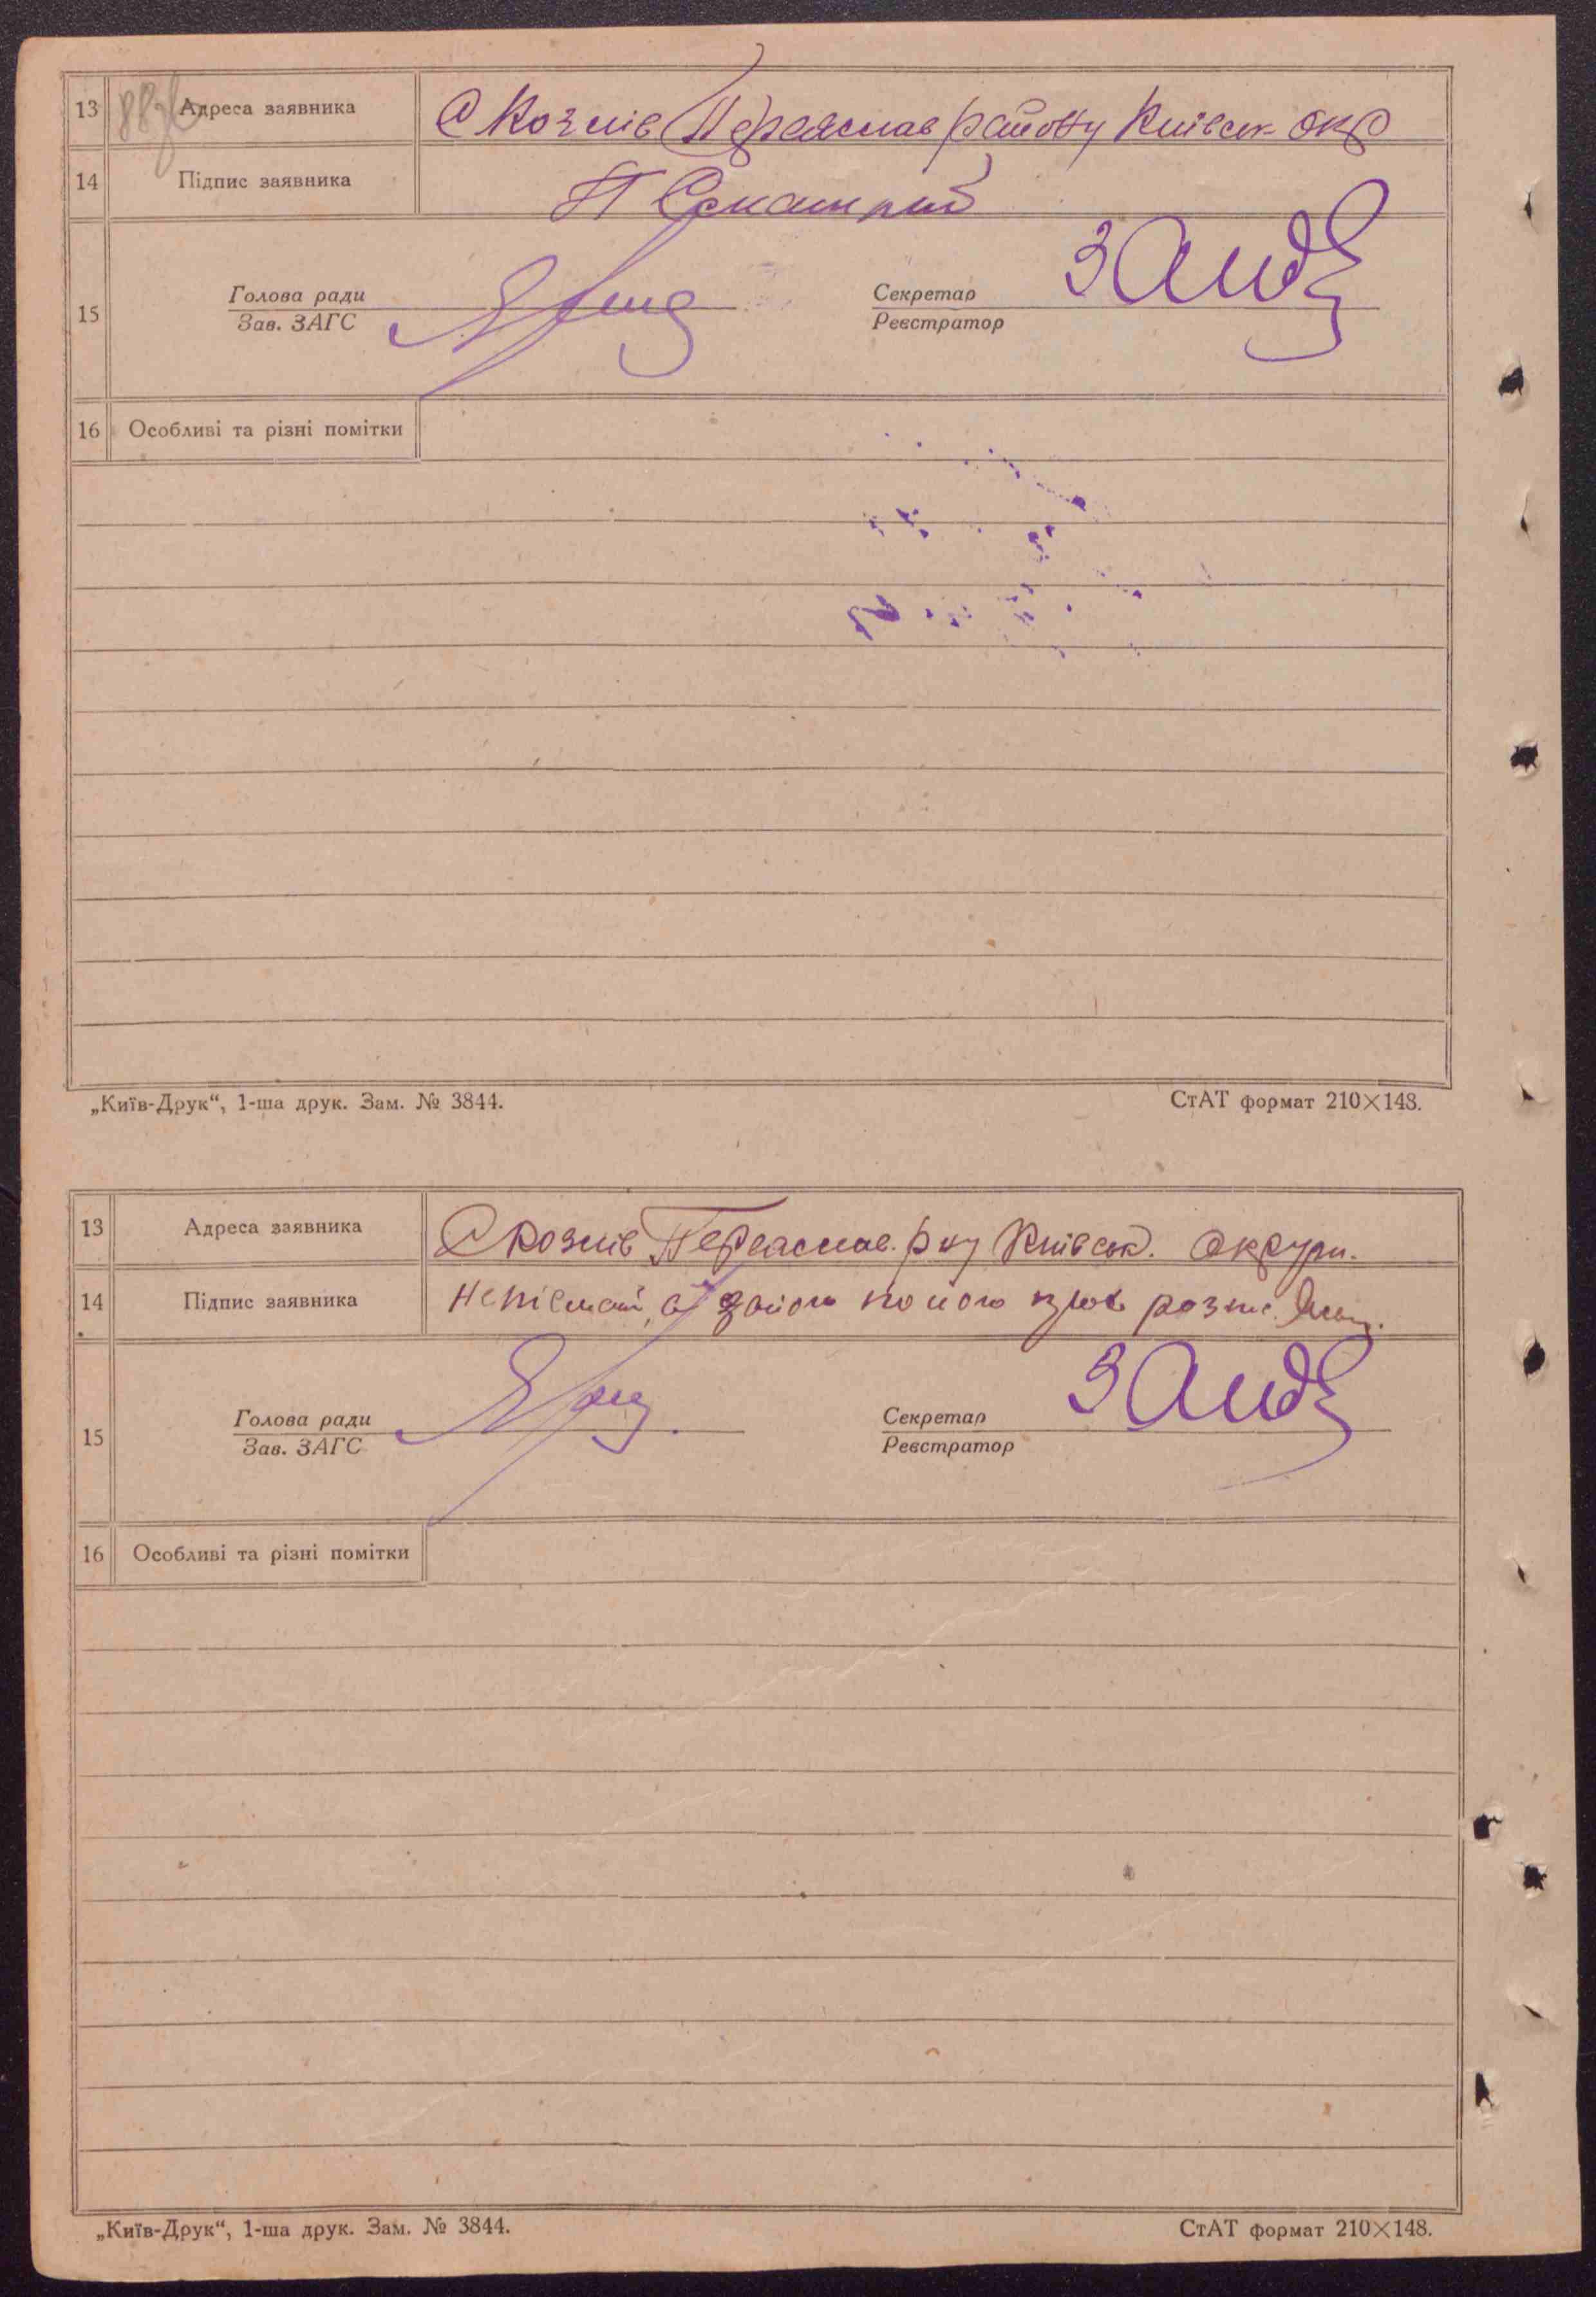 13 Адреса заявника С Козлів Переяслав району Київськ окр
14 Підпис заявника П
15 Голова ради Секретар
Зав. ЗАГС Реєстратор
16 Особливі та різні помітки
„Київ-Друк“, 1-ша друк. Зам. № 3844. СтАТ формат 210×148.
13 Адреса заявника С Козлів Переяслав. р ну Київськ. округи.
14 Підпис заявника розпис.
15 Голова ради Секретар
Зав. ЗАГС Реєстратор
16 Особливі та різні помітки
„Київ-Друк“, 1-ша друк. Зам. № 3844. СтАТ формат 210×148.